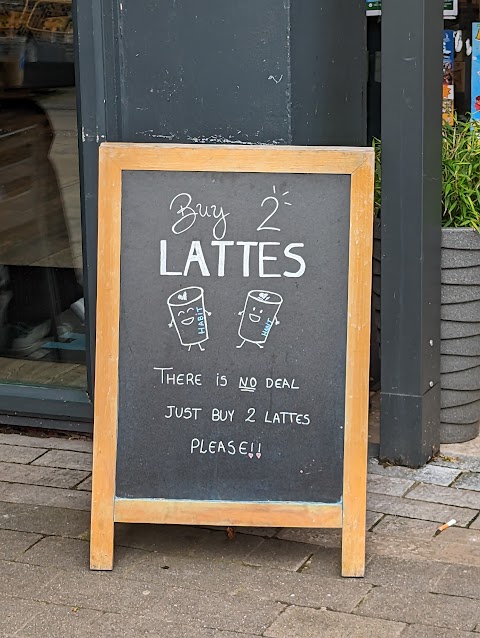 Buy 2
LATTES
HABIT
THERE IS NO DEAL
JUST BUY 2 LATTES
PLEASE!!